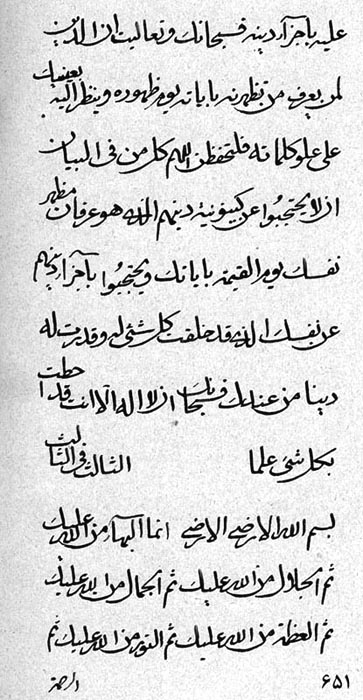 عليه باجزآء دينه فسبحانك وتعاليت ان الدين
لمن يعرف من تظهرنه باياته يوم ظهوره وينظر اليه بعينيك
على علو كلماته فلتحفظن اللهم كل من فى البيان
ان لا يحتجبوا عن كينونية دينهم الذى هو عرفان مظهر
نفسك يوم القيمة باياتك ويحتجبوا باجزآء دينهم
عن نفسك الذى قد خلقت كل شئ له وقدرت له
دينا من عندك فسبحانك ان لا اله الا انت قد احطت
بكل شئ علما الثالث فى الثالث
بسم الله الارضى الارضى انما البهآء من الله عليك
ثم الجلال من الله عليك ثم الجمال من الله عليك
ثم العظمة من الله عليك ثم النور من الله عليك ثم
الرحمة ۶۵۱